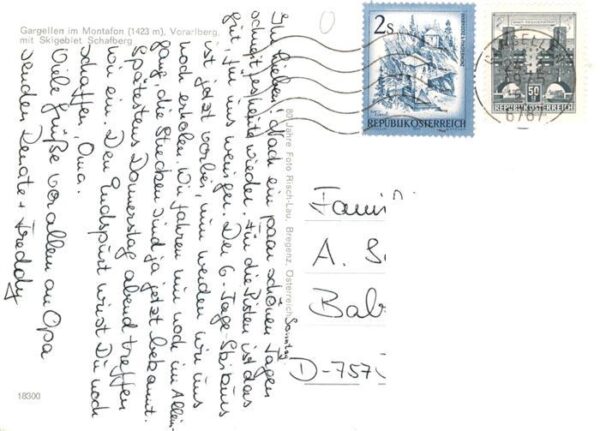 Gargellen im Montafon (1423 m), Vorarlberg,
mit Skigebiet Schafberg
Ihr Lieben! Nach ein paar schönen Tagen
schneit es heute wieder. Für die Pisten ist das
gut, für uns weniger. Der 6-Tage-Skikurs
ist jetzt vorbei, nun werden wir uns
noch erholen. Wir fahren nur noch im Allein-
gang, die Strecken sind ja jetzt bekannt.
Spätestens Donnerstag abend treffen
wir ein. Den Endspurt wirst Du noch
schaffen, Oma.
Viele Grüße vor allem an Opa
senden Renate + Freddy
Samstag
18300
80 Jahre Foto Risch-Lau, Bregenz, Österreich
2 S
REPUBLIK ÖSTERREICH
50
REPUBLIK ÖSTERREICH
6787
Fami
A. S
Bab
D-757